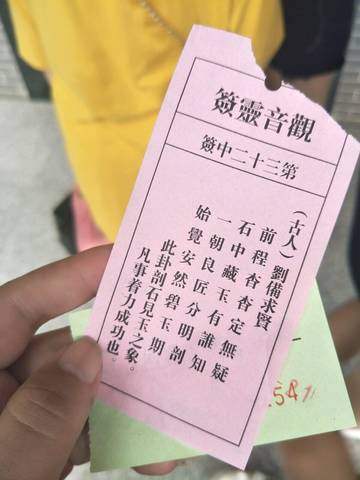 觀音靈簽
第三十二中簽
（古人）劉備求賢
前程杳杳定無疑
石中藏玉有誰知
一朝良匠分明剖
始覺安然碧玉期
此卦剖石見玉之象。
凡事着力成功也。